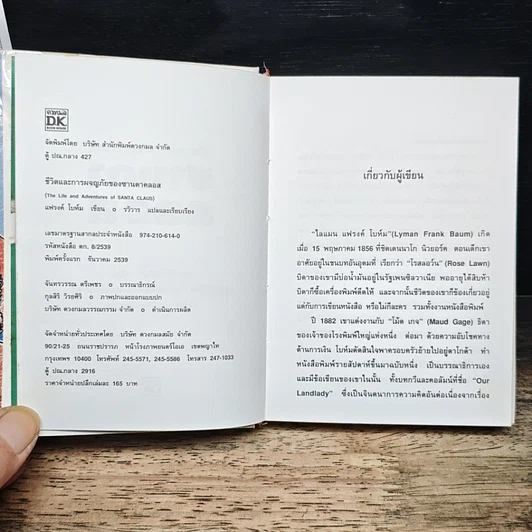 ดวงกมล
DK
BOOK HOUSE
จัดพิมพ์โดย บริษัท สำนักพิมพ์ดวงกมล จำกัด
ตู้ ปณ.กลาง 427
ชีวิตและการผจญภัยของซานตาคลอส
(The Life and Adventures of SANTA CLAUS)
แฟรงค์ โบห์ม เขียน ๐ รวิวาร แปลและเรียบเรียง
เลขมาตรฐานสากลประจำหนังสือ 974-210-614-0
รหัสหนังสือ ดก. 8/2539
พิมพ์ครั้งแรก ธันวาคม 2539
จันทรวรรณ ตรีเพชร ๐ บรรณาธิการ
กุลสิริ วิวยศิริ ๐ ภาพปกและออกแบบปก
บริษัท ดวงกมลวรรณกรรม จำกัด ๐ ดำเนินการผลิต
จัดจำหน่ายทั่วประเทศโดย บริษัท ดวงกมลสมัย จำกัด
90/21-25 ถนนราชปรารภ หน้าโรงภาพยนตร์โอเอ เขตพญาไท
กรุงเทพฯ 10400 โทรศัพท์ 245-5571, 245-5586 โทรสาร 247-1033
ตู้ ปณ.กลาง 2916
ราคาจำหน่ายปลีกเล่มละ 165 บาท
เกี่ยวกับผู้เขียน
"ไลแมน แฟรงค์ โบห์ม"(Lyman Frank Baum) เกิด
เมื่อ 15 พฤษภาคม 1856 ที่ชิตเตนนาโก นิวยอร์ค ตอนเด็กเขา
อาศัยอยู่ในชนบทอันอุดมที่ เรียกว่า "โรสลอว์น" (Rose Lawn)
บิดาของเขามีบ่อน้ำมันอยู่ในรัฐเพนซิลวาเนีย พออายุได้สิบห้า
บิดาก็ซื้อเครื่องพิมพ์ดีดให้ และจากนั้นชีวิตของเขาก็ข้องเกี่ยวอยู่
แต่กับการเขียนหนังสือ หรือไม่ก็ละคร รวมทั้งงานหนังสือพิมพ์
ปี 1882 เขาแต่งงานกับ "โม้ด เกจ" (Maud Gage) ธิดา
ของเจ้าของโรงพิมพ์ใหญ่แห่งหนึ่ง ต่อมา ด้วยความอับโชคทาง
ด้านการเงิน โบห์มตัดสินใจพาครอบครัวย้ายไปอยู่ดาโกต้า ทำ
หนังสือพิมพ์รายสัปดาห์ขึ้นมาฉบับหนึ่ง เป็นบรรณาธิการเอง
และมีข้อเขียนของเขาในนั้น ทั้งบทกวีและคอลัมน์ที่ชื่อ "Our
Landlady" ซึ่งเป็นจินตนาการความคิดอันต่อเนื่องจากเรื่อง